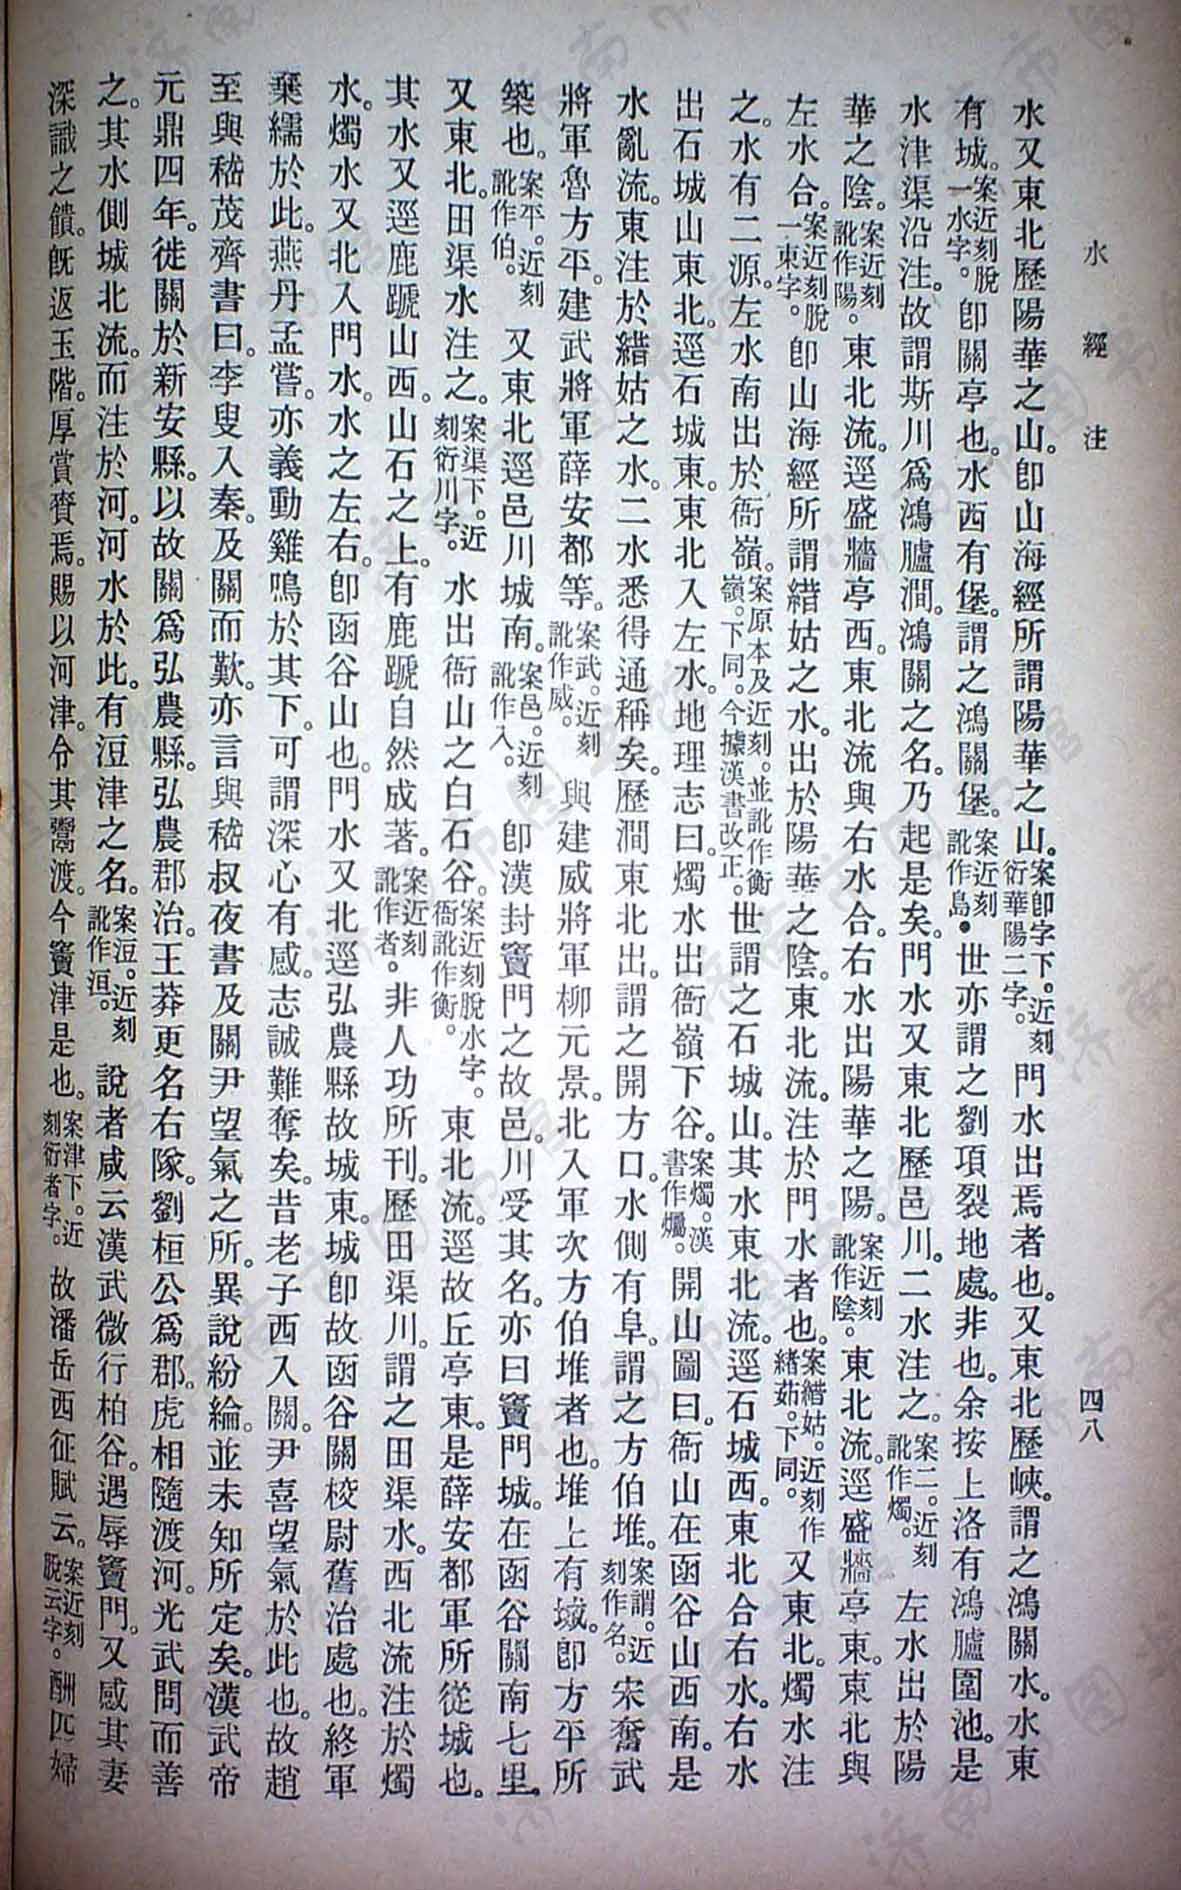 水經注
四八
水又東北歷陽華之山。卽山海經所謂陽華之山。案卽字下。近刻衍華陽二字。門水出焉者也。又東北歷峽。謂之鴻關水。水東
有城。案近刻脫一水字。卽關亭也。水西有堡。謂之鴻關堡。案近刻訛作島。世亦謂之劉項裂地處。非也。余按上洛有鴻臚圍池。是
水津渠沿注。故謂斯川爲鴻臚澗。鴻關之名。乃起是矣。門水又東北歷邑川。二水注之。案二。近刻訛作燭。左水出於陽
華之陰。案近刻訛作陽。東北流。逕盛牆亭西。東北流與右水合。右水出陽華之陽。案近刻訛作陰。東北流。逕盛牆亭東。東北與
左水合。案近刻脫一東字。卽山海經所謂緒姑之水。出於陽華之陰。東北流。注於門水者也。案緒姑。近刻作緒茹。下同。又東北。燭水注
之。水有二源。左水南出於衙嶺。案原本及近刻。並訛作衡嶺。下同。今據漢書改正。世謂之石城山。其水東北流。逕石城西。東北合右水。右水
出石城山東北。逕石城東。東北入左水。地理志曰。燭水出衙嶺下谷。案燭。漢書作爥。開山圖曰。衙山在函谷山西南。是
水亂流。東注於緒姑之水。二水悉得通稱矣。歷澗東北出。謂之開方口。水側有阜。謂之方伯堆。案謂。近刻作名。宋奮武
將軍魯方平。建武將軍薛安都等。案武。近刻訛作威。與建威將軍柳元景。北入軍次方伯堆者也。堆上有城。卽方平所
築也。案平。近刻訛作伯。又東北逕邑川城南。案邑。近刻訛作入。卽漢封竇門之故邑。川受其名。亦曰竇門城。在函谷關南七里。
又東北。田渠水注之。案渠下。近刻衍川字。水出衙山之白石谷。案近刻脫水字。衙訛作衡。東北流。逕故丘亭東。是薛安都軍所從城也。
其水又逕鹿蹏山西。山石之上。有鹿蹏自然成著。案近刻訛作者。非人功所刊。歷田渠川。謂之田渠水。西北流注於燭
水。燭水又北入門水。水之左右。卽函谷山也。門水又北逕弘農縣故城東。城卽故函谷關校尉舊治處也。終軍
棄繻於此。燕丹孟嘗。亦義動雞鳴於其下。可謂深心有感。志誠難奪矣。昔老子西入關。尹喜望氣於此也。故趙
至與嵇茂齊書曰。李叟入秦。及關而歎。亦言與嵇叔夜書及關尹望氣之所。異說紛綸。並未知所定矣。漢武帝
元鼎四年。徙關於新安縣。以故關爲弘農縣。弘農郡治。王莽更名右隊。劉桓公爲郡。虎相隨渡河。光武問而善
之。其水側城北流。而注於河。河水於此。有浢津之名。案浢。近刻訛作洹。說者咸云漢武微行柏谷。遇辱竇門。又感其妻
深識之饋。旣返玉階。厚賞賚焉。賜以河津。令其鬻渡。今竇津是也。案津下。近刻衍者字。故潘岳西征賦云。案近刻脫云字。酬匹婦